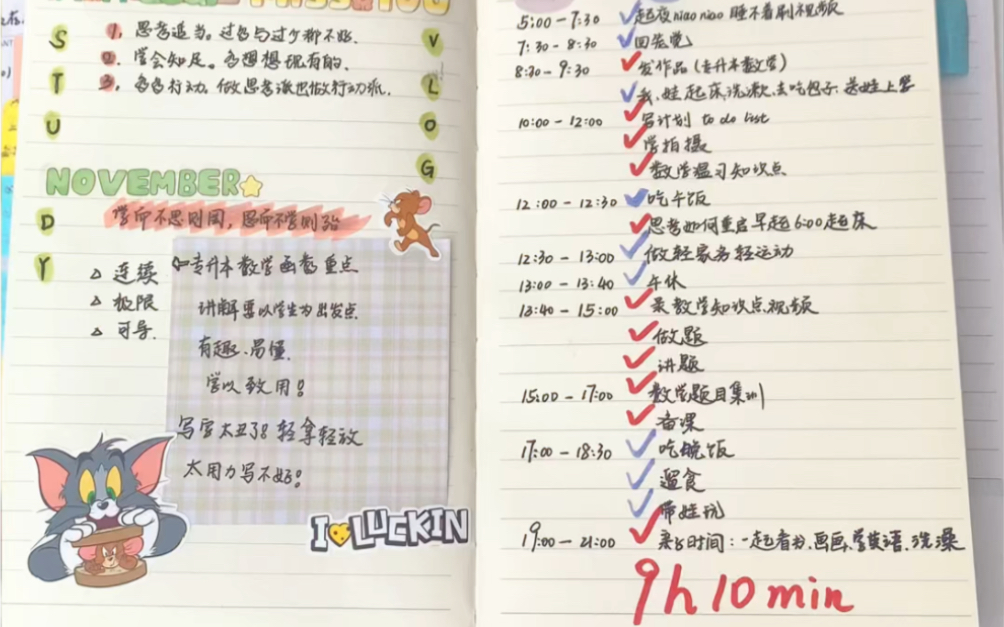 S T U D Y
VLOG
1. 思考适当。过多与过少都不好.
2. 学会知足。多想想现有的.
3. 多多行动. 做思考派也做行动派.
NOVEMBER
学而不思则罔,思而不学则殆
△ 连续
△ 极限
△ 可导.
专升本数学函数重点
讲解要以学生为出发点
有趣、易懂.
学以致用!
写字太丑了! 轻拿轻放
太用力写不好!
I LUCKIN
5:00 - 7:30 起夜niao niao 睡不着刷视频
7:30 - 8:30 回笼觉
8:30 - 9:30 发作品(专升本数学)
我、娃起床、洗漱、去吃包子、送娃上学
10:00 - 12:00 写计划 to do list
学拍摄
数学温习知识点
12:00 - 12:30 吃午饭
思考如何重启早起6:00起床
12:30 - 13:00 做轻家务轻运动
13:00 - 13:40 午休
13:40 - 15:00 录数学知识点视频
做题
讲题
15:00 - 17:00 数学题目集训
备课
17:00 - 18:30 吃晚饭
遛食
带娃玩
19:00 - 21:00 亲子时间:一起看书、画画、学英语、洗澡
9h 10 min